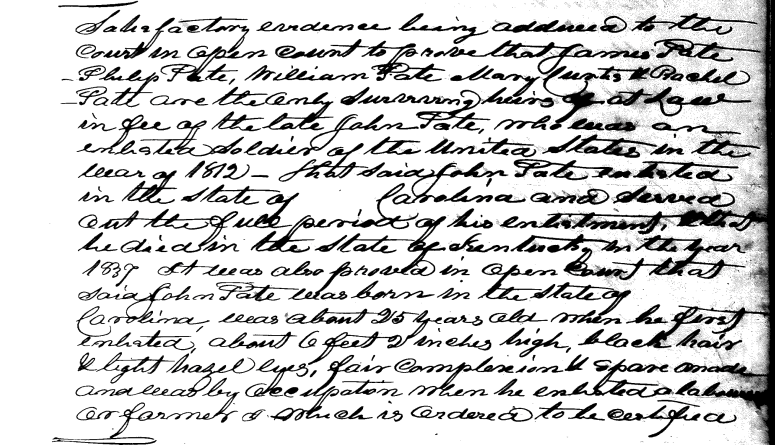 Satisfactory evidence being adduced to the
Court in open Court to prove that James Pate
Philip Pate, William Pate Mary Curtis & Rachel
Pate are the only surviving heirs of at Law
in fee of the late John Pate, who was an
enlisted soldier of the United States in the
War of 1812 – that said John Pate enlisted
in the State of Carolina and served
out the full period of his enlistment, & that
he died in the State of Kentucky in the year
1837 It was also proved in open Court that
said John Pate was born in the State of
Carolina, was about 25 years old when he first
enlisted, about 6 feet 2 inches high, black hair
& light hazel eyes, fair complexion & spare made
and was by occupation when he enlisted a labourer
or farmer which is ordered to be certified